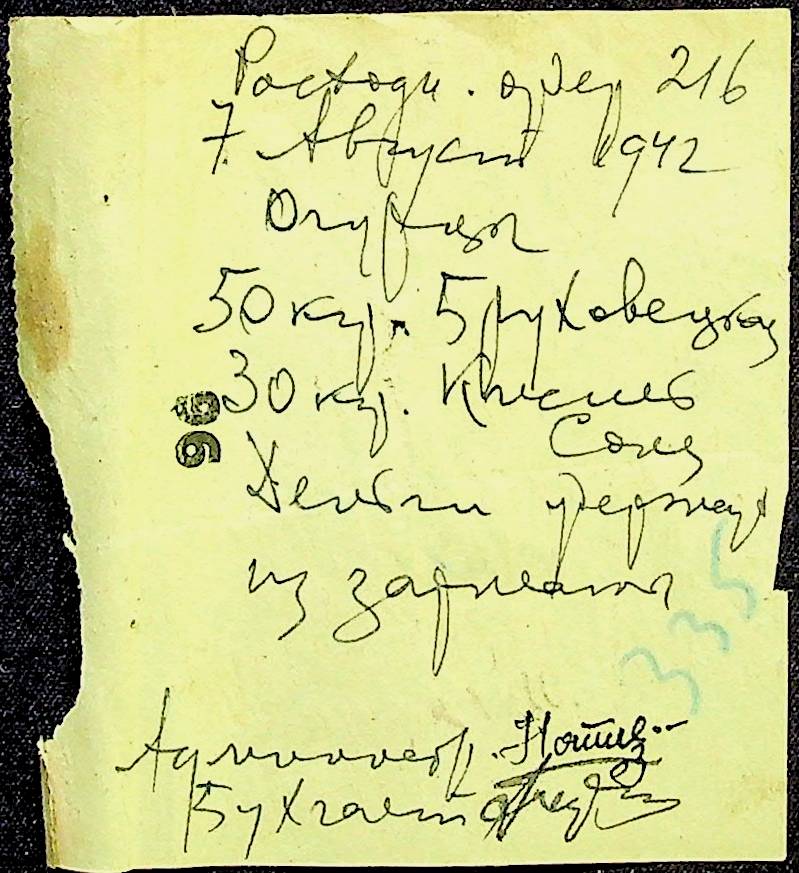 Расходн. ордер 216
7. Август 1942
Огурцы
50 кгр. Бруховецкой
30 кгр.
96
Деньги удержат
из зарплаты
335
Администр.
Бухгалт